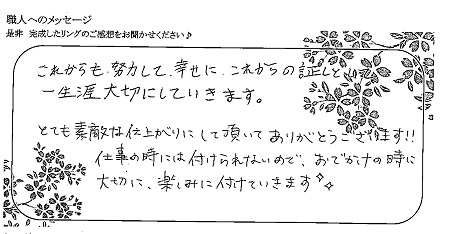 職人へのメッセージ
是非 完成したリングのご感想をお聞かせください♪
これからも努力して、幸せに、これからの証しと
一生涯大切にしていきます。
とても素敵な仕上がりにして頂いてありがとうございます!!
仕事の時には付けられないので、おでかけの時に
大切に、楽しみに付けていきます